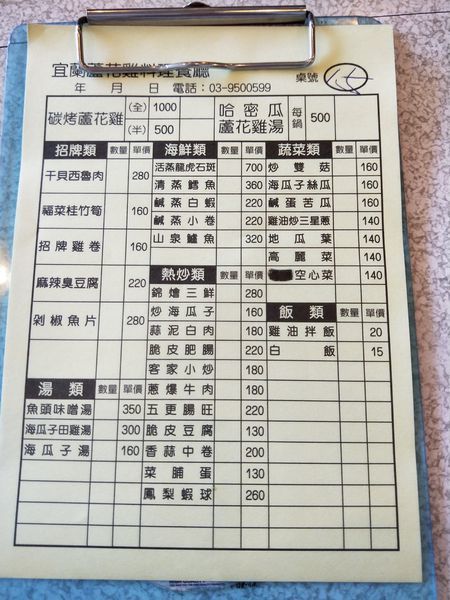 宜蘭蘆花雞料理餐廳
年 月 日 電話：03-9500599 桌號
碳烤蘆花雞 (全) 1000 (半) 500 哈密瓜蘆花雞湯 每鍋 500
招牌類 數量 單價
干貝西魯肉 280
福菜桂竹筍 160
招牌雞卷 160
麻辣臭豆腐 220
剁椒魚片 280
湯類 數量 單價
魚頭味噌湯 350
海瓜子田雞湯 300
海瓜子湯 160
海鮮類 數量 單價
活蒸龍虎石斑 700
清蒸鱈魚 360
鹹蒸白蝦 220
鹹蒸小卷 220
山泉鱸魚 320
熱炒類 數量 單價
錦燴三鮮 280
炒海瓜子 160
蒜泥白肉 180
脆皮肥腸 220
客家小炒 180
蔥爆牛肉 180
五更腸旺 220
脆皮豆腐 130
香蒜中卷 200
菜脯蛋 130
鳳梨蝦球 260
蔬菜類 數量 單價
炒雙菇 160
海瓜子絲瓜 160
鹹蛋苦瓜 160
雞油炒三星蔥 140
地瓜葉 140
高麗菜 140
空心菜 140
飯類 數量 單價
雞油拌飯 20
白飯 15